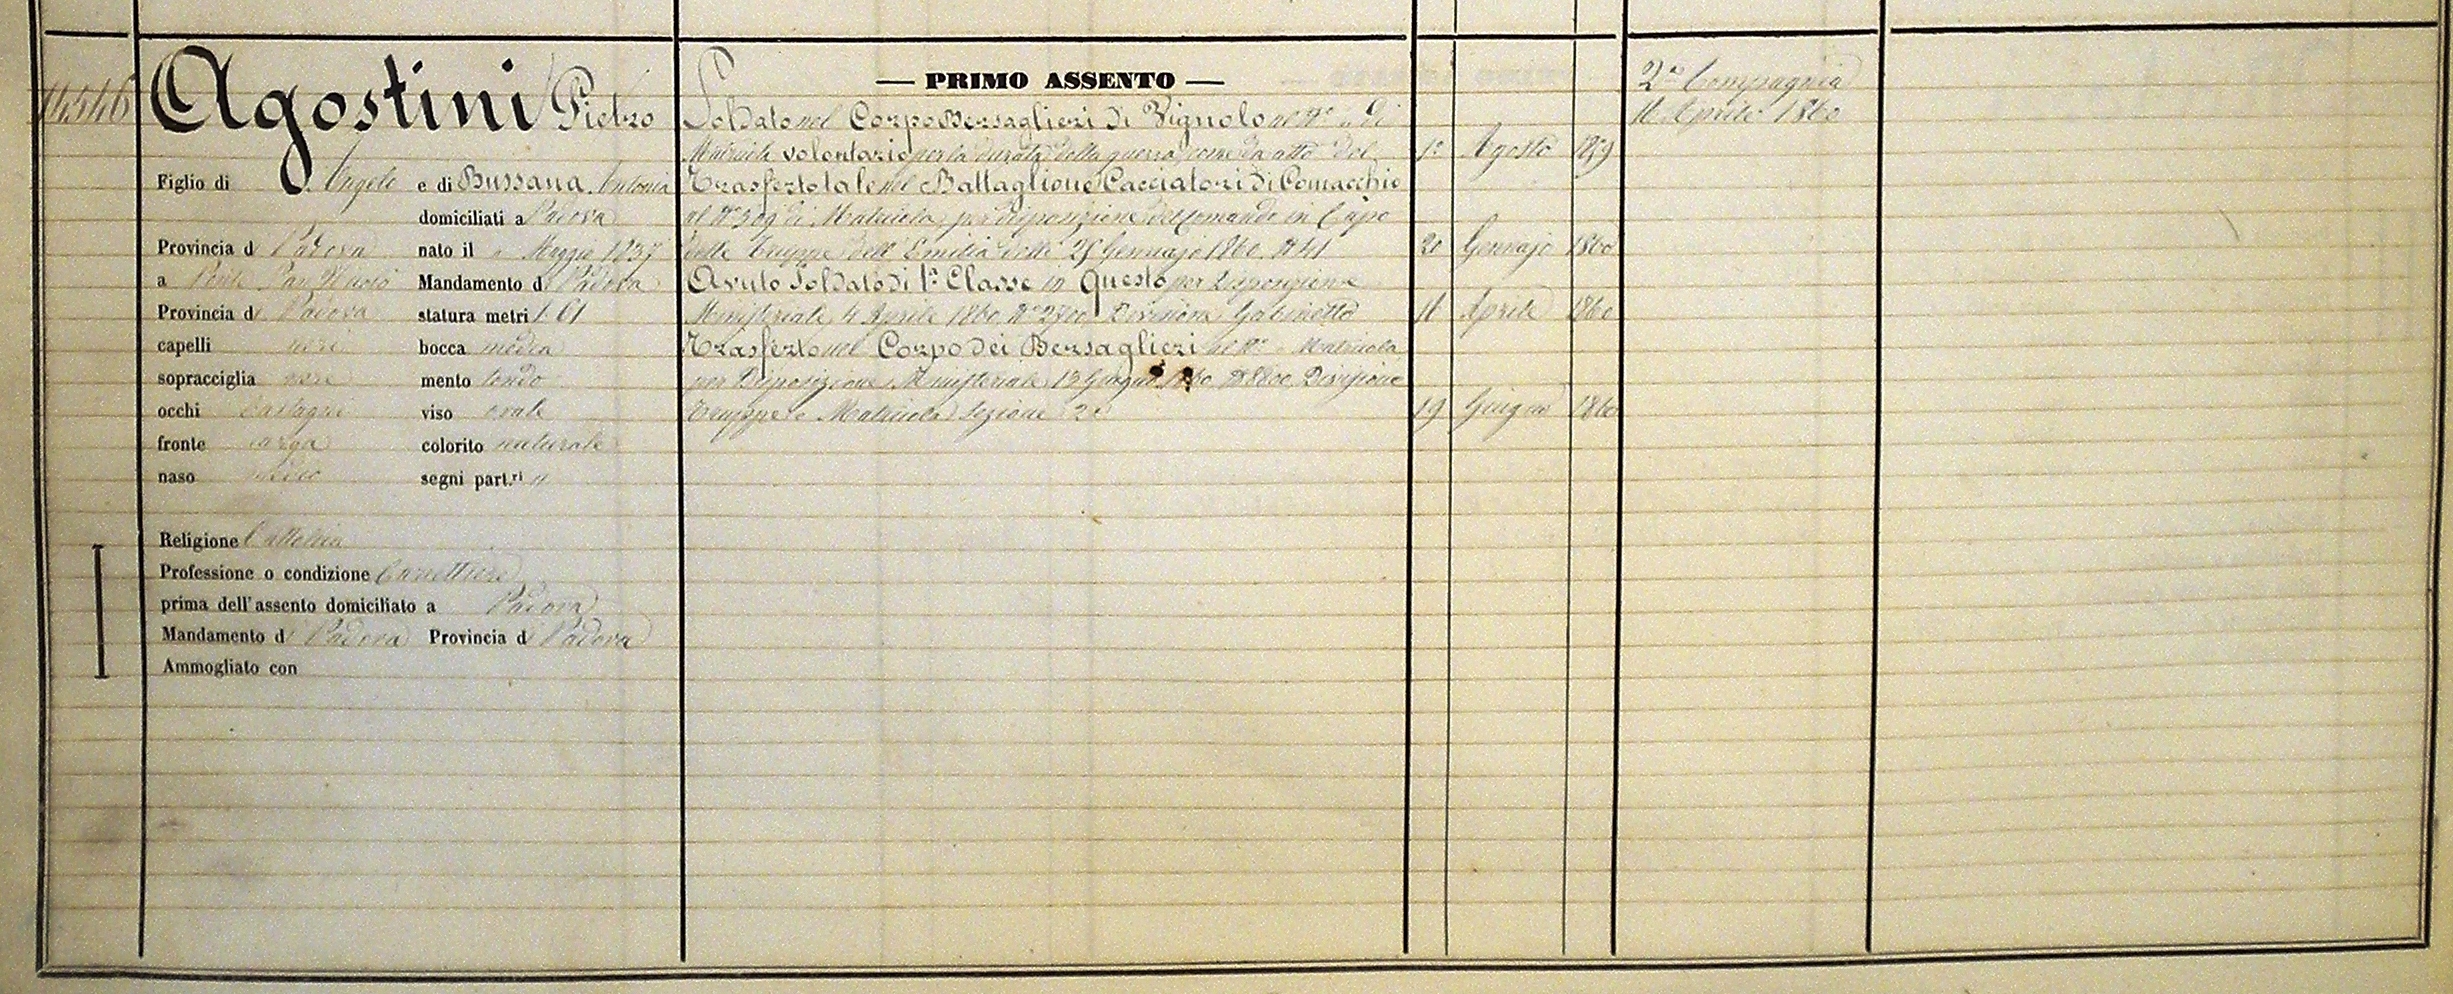 14546
Agostini Pietro
Figlio di Angelo e di Bussana Antonia
domiciliati a Padova
Provincia di Padova nato il " Maggio 1837
a Ponte San Nicolò Mandamento di Padova
Provincia di Padova statura metri 1. 61
capelli neri bocca media
sopracciglia nere mento tondo
occhi Castagni viso ovale
fronte larga colorito naturale
naso medio segni part.ri "
Religione Cattolica
Professione o condizione Carrettiere
prima dell'assento domiciliato a Padova
Mandamento di Padova Provincia di Padova
Ammogliato con
— PRIMO ASSENTO —
Soldato nel Corpo Bersaglieri di Vignolo al N° " di
Matricola volontario per la durata della guerra come da atto del 1° Agosto 1859
Trasferto tale nel Battaglione Cacciatori di Comacchio
al N° 309 di Matricola per disposizione del Comando in Capo
delle Truppe dell'Emilia delli 25 Gennajo 1860 N° 41 20 Gennajo 1860
Avuto Soldato di 1ª Classe in Questo per Disposizione
Ministeriale 4 Aprile 1860 N° 2700 Divisione Gabinetto 16 Aprile 1860
Trasferto nel Corpo dei Bersaglieri al N° " Matricola
per Disposizione Ministeriale 13 Giugno 1860 N° 8800 Divisione
Truppe e Matricola Sezione 2ª 19 Giugno 1860
2ª Compagnia
16 Aprile 1860